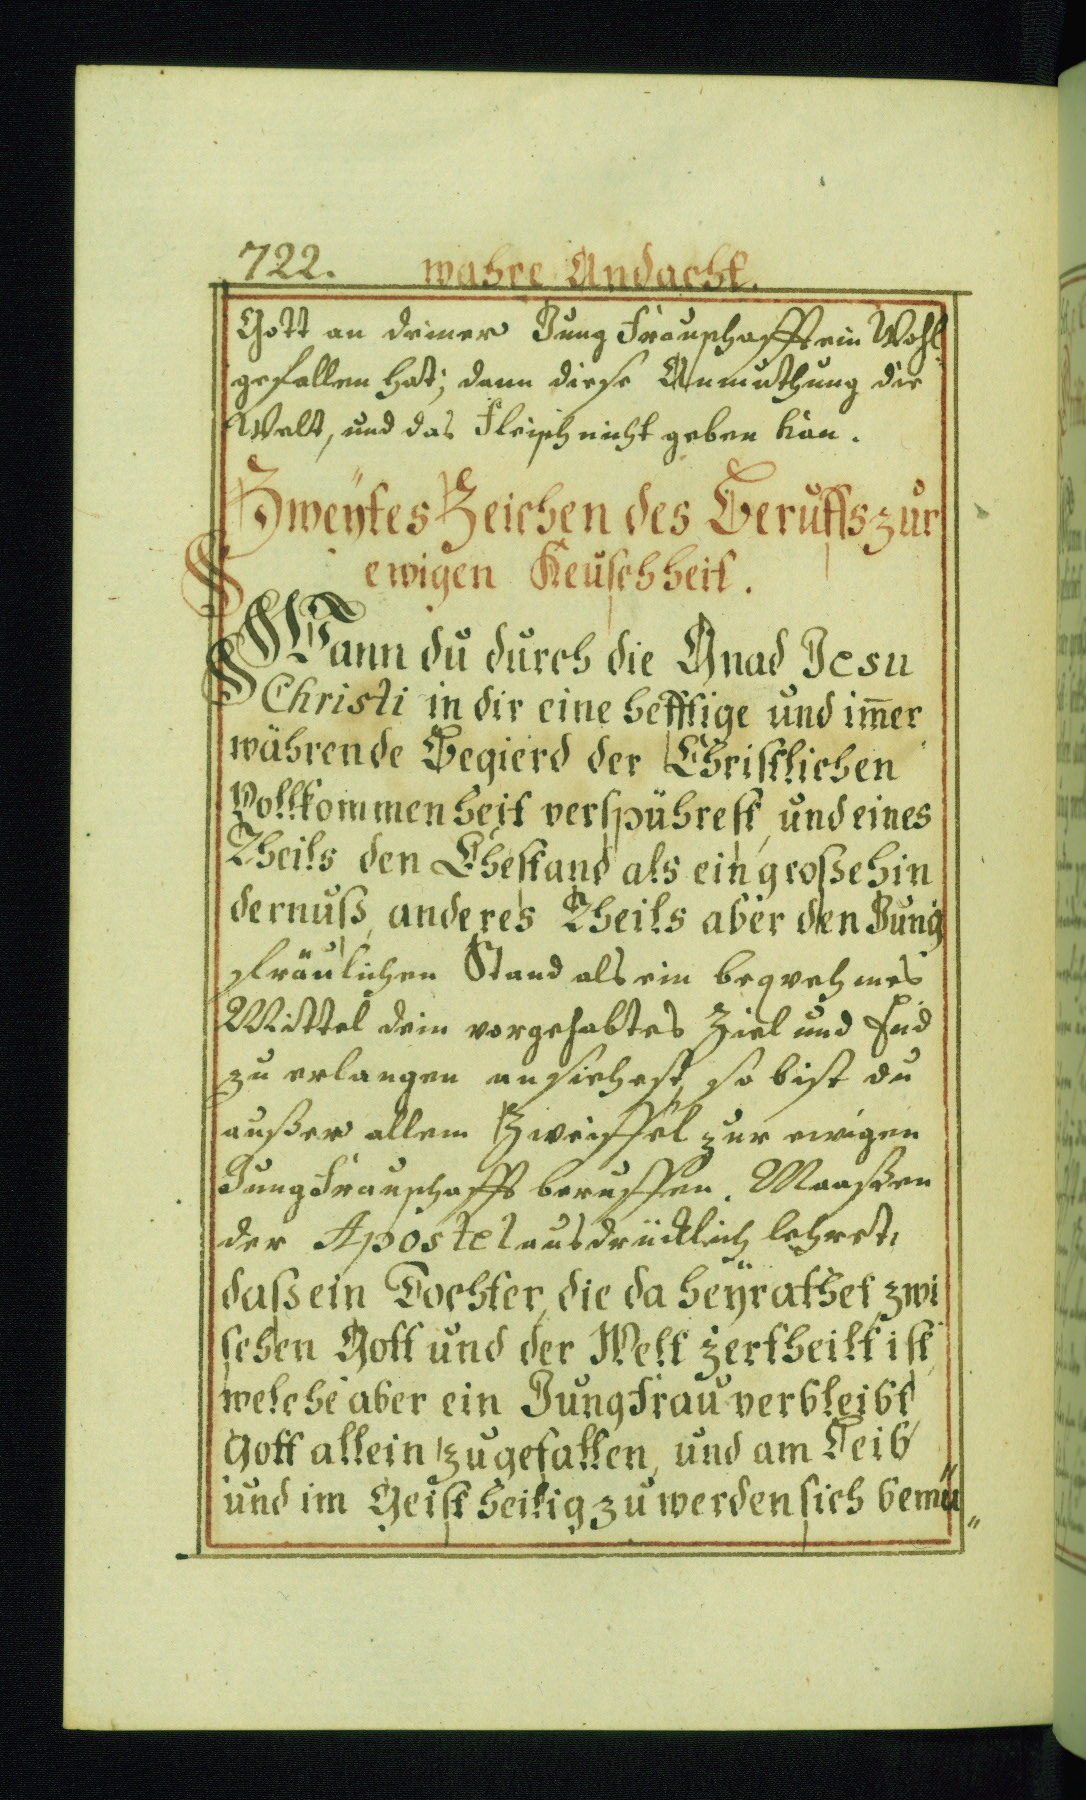 722. wahre Andacht.
Gott an deiner Jungfrauschafft ein Wohl
gefallen hat; dann diese Anmuthung die
Welt, und das Fleisch nicht geben kan.
Zweÿtes Zeichen des Beruffs zur
ewigen Keuschheit.
Wann du durch die Gnad Jesu
Christi in dir eine hefftige und im̅er
währende Begierd der Christlichen
Vollkommenheit verspührest, und eines
Theils den Ehestand als ein große hin
dernuß, anderes Theils aber den Jung
fräulichen Stand als ein beqvehmes
Mittel dein vorgehabtes Ziel und End
zu erlangen ansiehest, so bist du
außer allem Zweiffel zur ewigen
Jungfrauschafft beruffen. Maaßen
der Apostel ausdrücklich lehret,
daß ein Tochter, die da heÿrathet, zwi
schen Gott und der Welt zertheilt ist,
welche aber ein Jungfrau verbleibt
Gott allein zu gefallen, und am Leib
und im Geist heilig zu werden sich bemü„